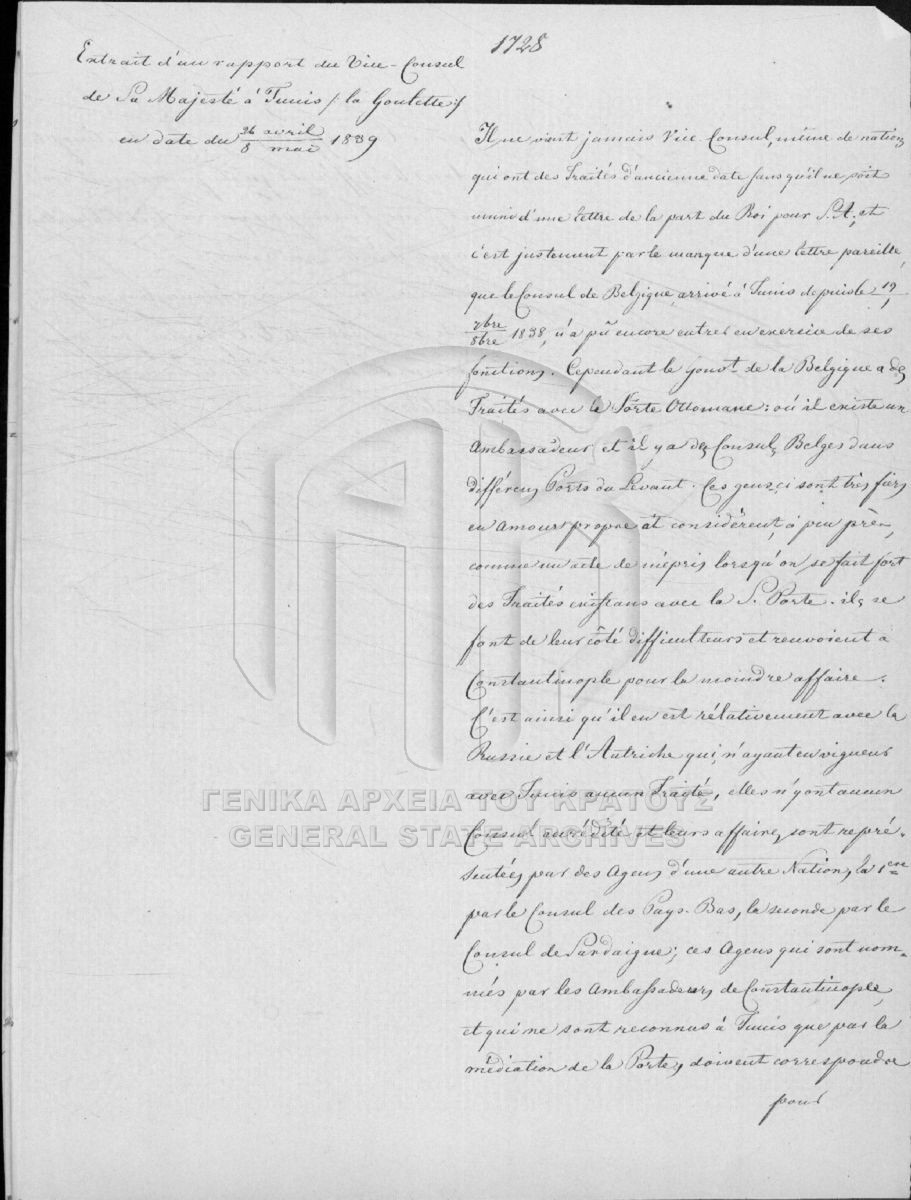 1728
Extrait d'un rapport du Vice-Consul
de Sa Majesté à Tunis /: la Goulette :/
en date du 26 avril / 8 mai 1839
Il ne vient jamais Vice-Consul, même de nations
qui ont des Traités d'ancienne date sans qu'il ne soit
muni d'une lettre de la part du Roi pour S. A; et
c'est justement par le manque d'une lettre pareille,
que le Consul de Belgique, arrivé à Tunis depuis le 19
7bre / 8bre 1838, n'a pû encore entrer en exercice de ses
fonctions. Cependant le Gouvt. de la Belgique a des
Traités avec la Porte Ottomane: où il existe un
Ambassadeur et il y a des Consuls Belges dans
différens Ports du Levant. Ces gens ci sont très fiers
en amour propre et considèrent, à peu près,
comme un acte de mépris lorsqu'on se fait fort
des Traités existans avec la S. Porte. ils se
font de leur côté difficulteurs et renvoient à
Constantinople pour la moindre affaire.
C'est ainsi qu'il en est rélativement avec la
Russie et l'Autriche qui, n'ayant en vigueur
avec Tunis aucun Traité, elles n'y ont aucun
Consul accrédité et leurs affaires sont repré-
sentées par des Agens d'une autre Nation, la 1ère
par le Consul des Pays-Bas, la seconde par le
Consul de Sardaigne; ces Agens qui sont nom-
més par les Ambassadeurs de Constantinople,
et qui ne sont reconnus à Tunis que par la
médiation de la Porte, doivent correspondre
pour
ΓΕΝΙΚΑ ΑΡΧΕΙΑ ΤΟΥ ΚΡΑΤΟΥΣ
GENERAL STATE ARCHIVES